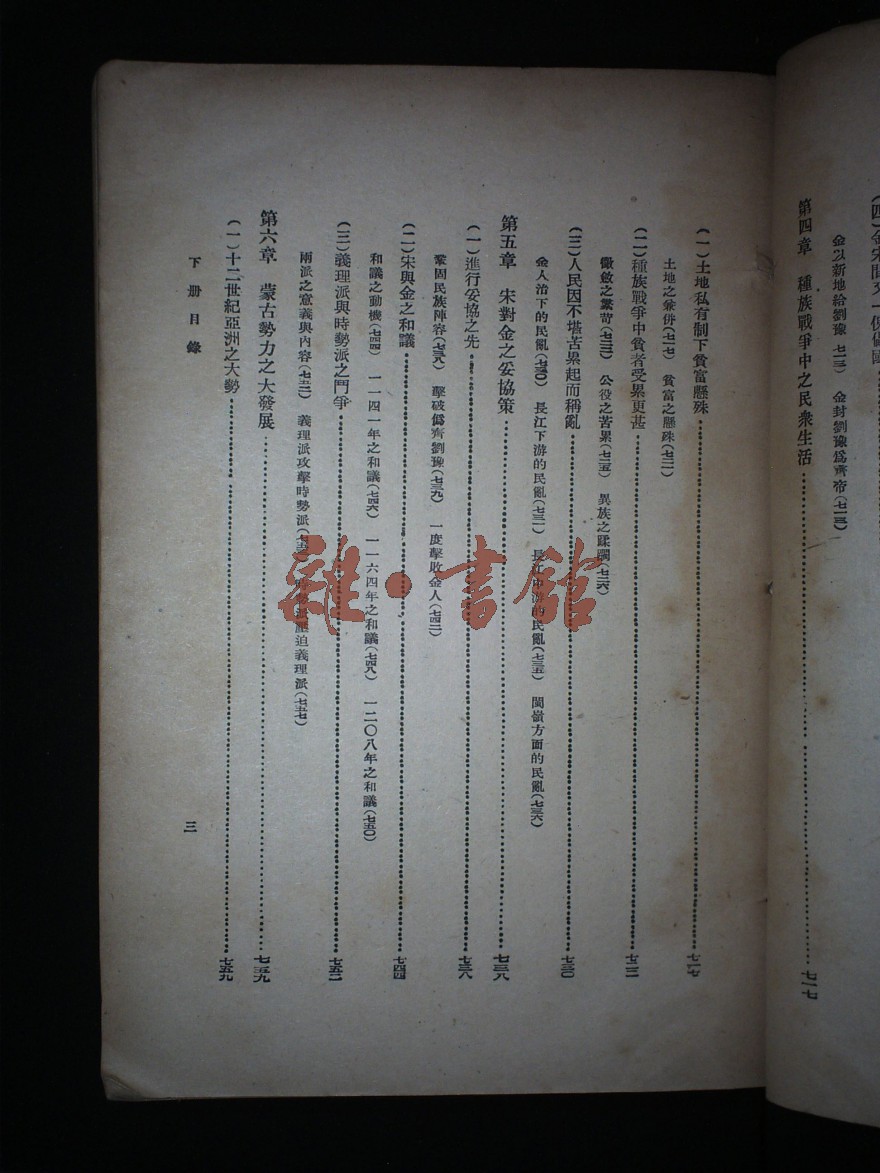 金以新地給劉豫(七一三) 金封劉豫爲齊帝(七一三)
第四章 種族戰爭中之民衆生活……七一七
(一)土地私有制下貧富懸殊……七一七
土地之兼併(七一七) 貧富之懸殊(七二一)
(二)種族戰爭中貧者受累更甚……七二二
徵斂之繁苛(七二二) 公役之苦累(七二五) 異族之蹂躪(七二六)
(三)人民因不堪苦累起而稱亂……七三〇
金人治下的民亂(七三〇) 長江下游的民亂(七三一) 長江中游的民亂(七三五) 閩嶺方面的民亂(七三六)
第五章 宋對金之妥協策……七三八
(一)進行妥協之先……七三八
鞏固民族陣容(七三八) 擊破僞齊劉豫(七三九) 一度擊敗金人(七四二)
(二)宋與金之和議……七四四
和議之動機(七四四) 一一四一年之和議(七四六) 一一六四年之和議(七四八) 一二〇八年之和議(七五〇)
(三)義理派與時勢派之鬥爭……七五二
兩派之意義與內容(七五二) 義理派攻擊時勢派 時勢派壓迫義理派(七五七)
第六章 蒙古勢力之大發展……七五九
(一)十二世紀亞洲之大勢……七五九
下册目錄
三
雜·書館